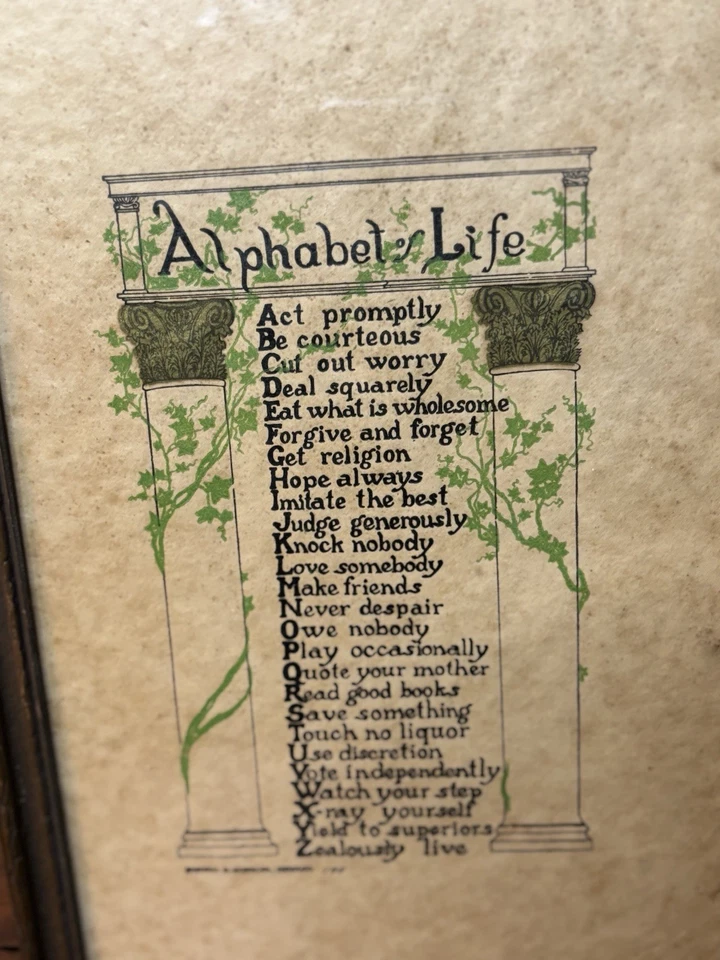 Alphabet of Life
Act promptly
Be courteous
Cut out worry
Deal squarely
Eat what is wholesome
Forgive and forget
Get religion
Hope always
Imitate the best
Judge generously
Knock nobody
Love somebody
Make friends
Never despair
Owe nobody
Play occasionally
Quote your mother
Read good books
Save something
Touch no liquor
Use discretion
Vote independently
Watch your step
X-ray yourself
Yield to superiors
Zealously live